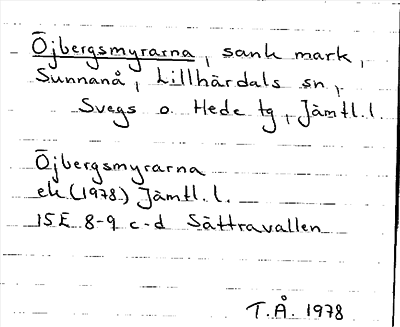 Öjbergsmyrarna, sank mark,
Sunnanå, Lillhärdals sn,
Svegs o. Hede tg, Jämtl.l.
Öjbergsmyrarna
ek (1978) Jämtl.l.
15E 8-9 c-d Sättravallen
T.Å. 1978